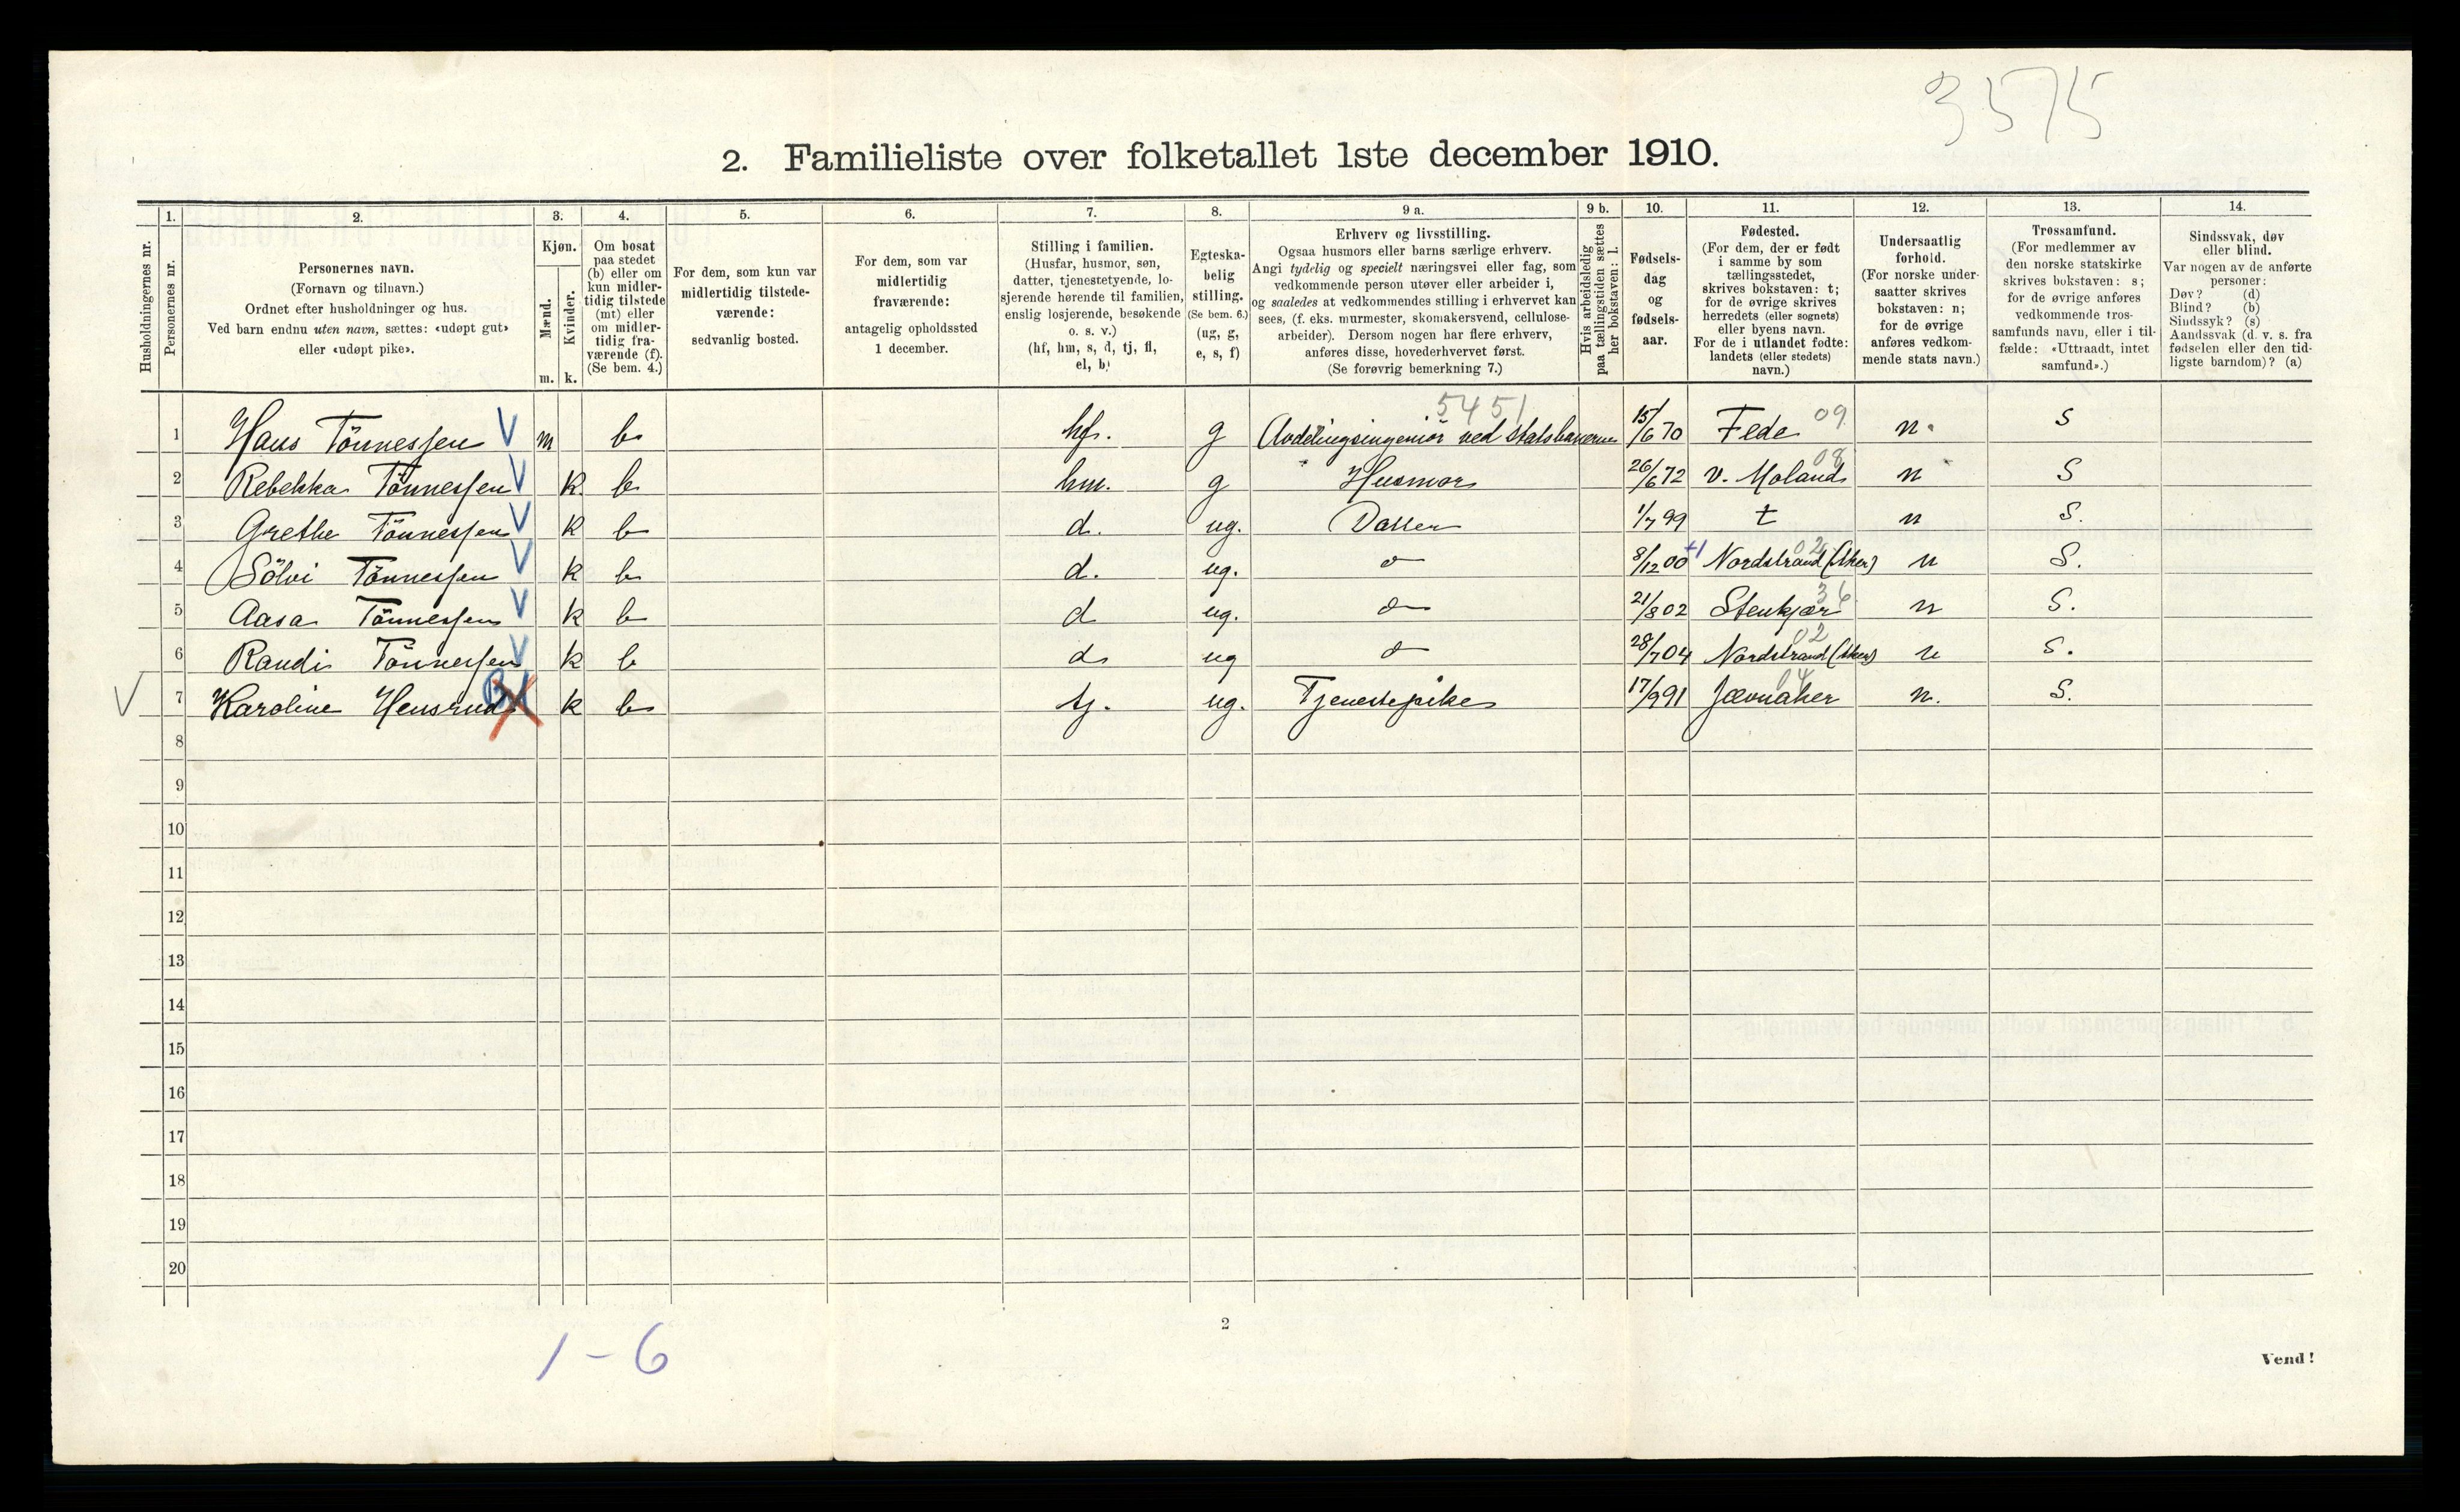 3575
2. Familieliste over folketallet 1ste december 1910.
Husholdningernes nr.
1. Personernes nr.
2. Personernes navn.
(Fornavn og tilnavn.)
Ordnet efter husholdninger og hus.
Ved barn endnu uten navn, sættes: «udøpt gut»
eller «udøpt pike».
3. Kjøn.
Mænd. m.
Kvinder. k.
4. Om bosat
paa stedet
(b) eller om
kun midler-
tidig tilstede
(mt) eller
om midler-
tidig fra-
værende (f).
(Se bem. 4.)
5. For dem, som kun var
midlertidig tilstede-
værende:
sedvanlig bosted.
6. For dem, som var
midlertidig
fraværende:
antagelig opholdssted
1 december.
7. Stilling i familien.
(Husfar, husmor, søn,
datter, tjenestetyende, lo-
sjerende hørende til familien,
enslig losjerende, besøkende
o. s. v.)
(hf, hm, s, d, tj, fl,
el, b)
8. Egteska-
belig
stilling.
(Se bem. 6.)
(ug, g,
e, s, f)
9 a. Erhverv og livsstilling.
Ogsaa husmors eller barns særlige erhverv.
Angi tydelig og specielt næringsvei eller fag, som
vedkommende person utøver eller arbeider i,
og saaledes at vedkommendes stilling i erhvervet kan
sees, (f. eks. murmester, skomakersvend, cellulose-
arbeider). Dersom nogen har flere erhverv,
anføres disse, hovederhvervet først.
(Se forøvrig bemerkning 7.)
9 b. Hvis arbeidsledig
paa tællingstiden sættes
her bokstaven: l.
10. Fødsels-
dag
og
fødsels-
aar.
11. Fødested.
(For dem, der er født
i samme by som
tællingsstedet,
skrives bokstaven: t;
for de øvrige skrives
herredets (eller sognets)
eller byens navn.
For de i utlandet fødte:
landets (eller stedets)
navn.)
12. Undersaatlig
forhold.
(For norske under-
saatter skrives
bokstaven: n;
for de øvrige
anføres vedkom-
mende stats navn.)
13. Trossamfund.
(For medlemmer av
den norske statskirke
skrives bokstaven: s;
for de øvrige anføres
vedkommende tros-
samfunds navn, eller i til-
fælde: «Uttraadt, intet
samfund».)
14. Sindssvak, døv
eller blind.
Var nogen av de anførte
personer:
Døv? (d)
Blind? (b)
Sindssyk? (s)
Aandssvak (d. v. s. fra
fødselen eller den tid-
ligste barndom)? (a)
5451
1 Hans Tönnessen V m b hf. g Avdelingsingeniör ved statsbanerne 15/6 70 Fede 09 n. S
2 Rebekka Tönnessen V k b hm. g Husmor 26/6 72 V. Moland 08 n S
3 Grethe Tönnessen V k b d. ug. Datter 1/7 99 t n S.
4 Sölvi Tönnessen V k b d. ug. do 8/12 00 +1 Nordstrand (Aker) 02 n S.
5 Aasa Tönnessen V k b d ug. do 21/8 02 Stenkjær 36 n S.
6 Randi Tönnessen V k b d ug do 28/7 04 Nordstrand (Aker) 02 n S.
V 7 Karoline Hensrud k b tj. ug. Tjenestepike 17/9 91 Jævnaker 04 n. S.
8
9
10
11
12
13
14
15
16
17
18
19
20
2
1-6
Vend!